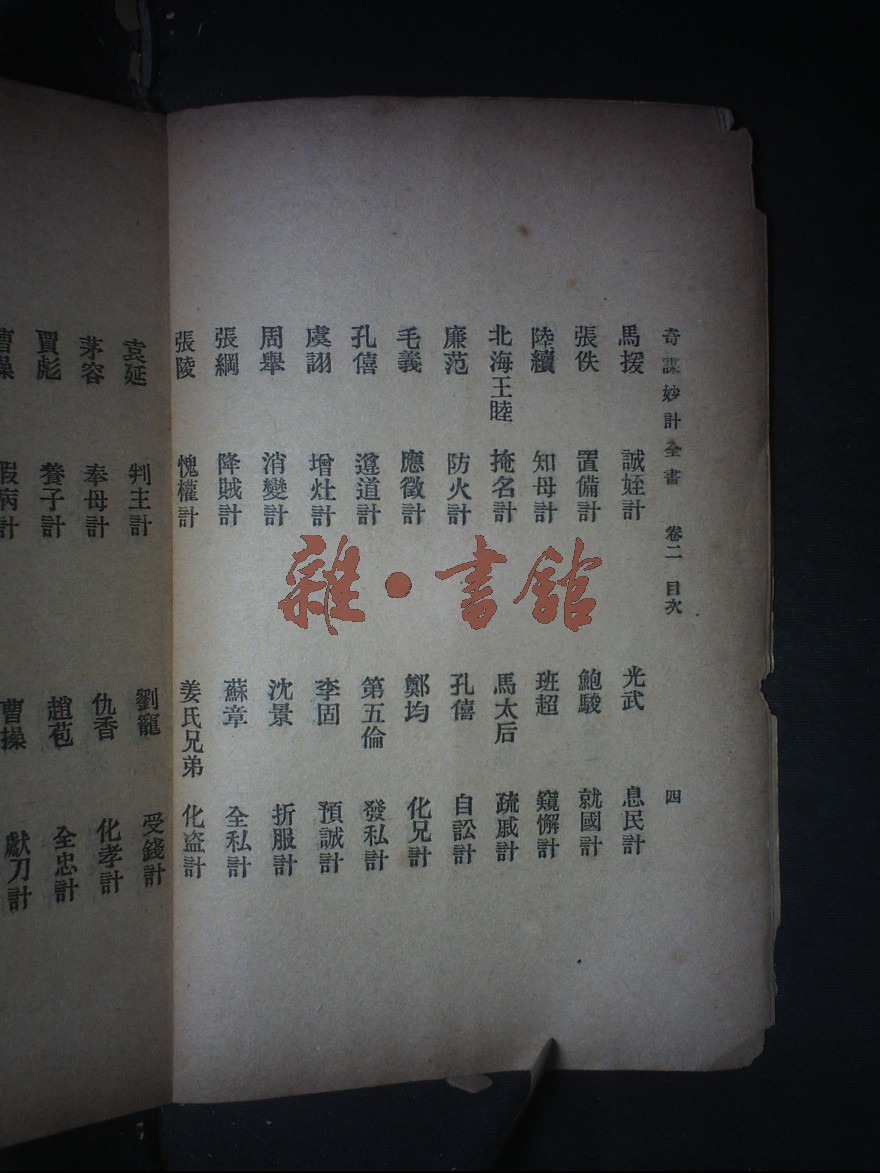 奇謀妙計全書 卷二 目次 四
馬援 誠姪計 光武 息民計
張佚 置備計 鮑駿 就國計
陸續 知母計 班超 窺懈計
北海王睦 掩名計 馬太后 疏戚計
廉范 防火計 孔僖 自訟計
毛義 應徵計 鄭均 化兄計
孔僖 遵道計 第五倫 發私計
虞詡 增灶計 李固 預誠計
周舉 消變計 沈景 折服計
張綱 降賊計 蘇章 全私計
張陵 愧權計 姜氏兄弟 化盜計
袁延 判主計 劉寵 受錢計
茅容 奉母計 仇香 化孝計
賈彪 養子計 趙苞 全忠計
曹操 假病計 曹操 獻刀計
雜·書館